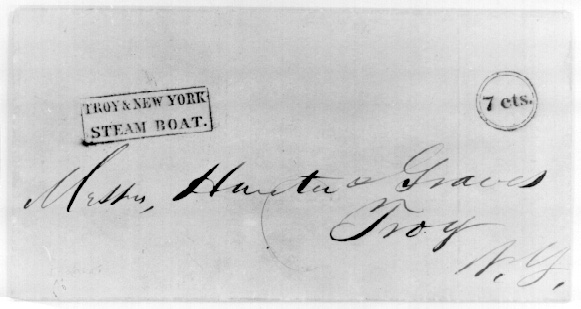 TROY & NEW YORK
STEAM BOAT.
7 cts.
Messrs, Hunter & Graves
Troy
N.Y.